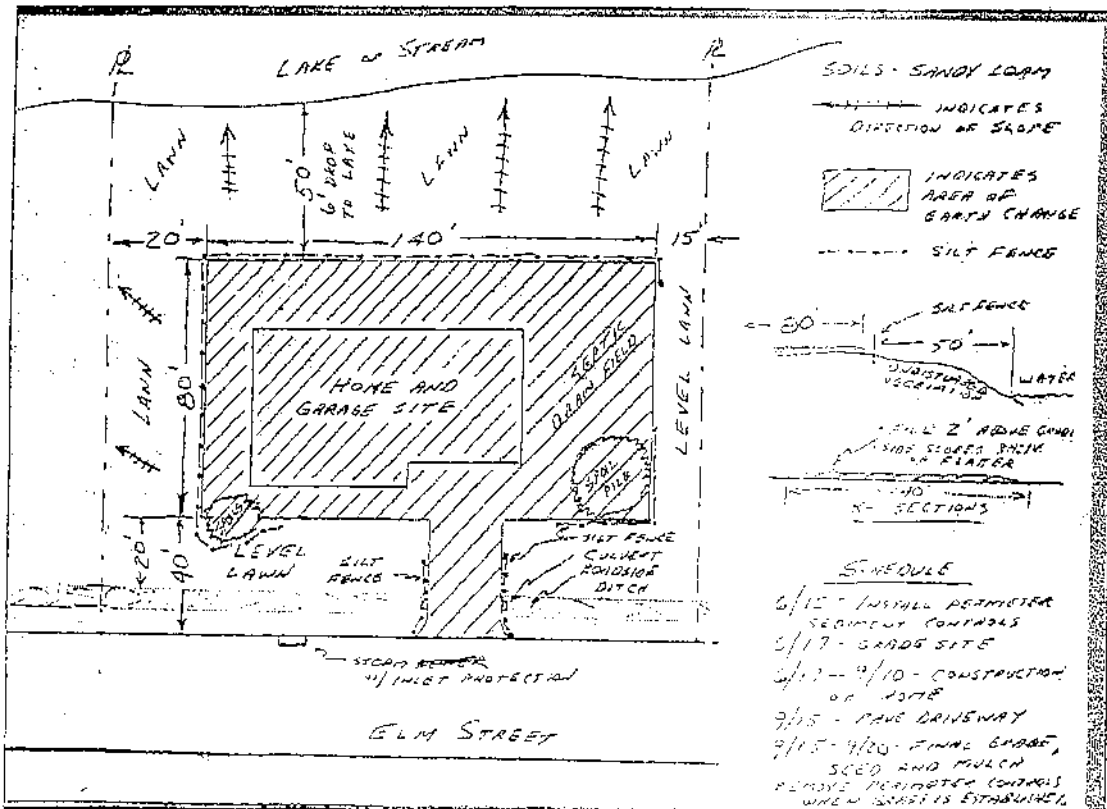 LAKE or STREAM
PL
PL
LAWN
LAWN
LAWN
50'
6' DROP
TO LAKE
20'
140'
15'
LAWN
80'
HOME AND
GARAGE SITE
SEPTIC
DRAIN FIELD
LEVEL LAWN
SPOIL
SPOIL
PILE
20'
40'
LEVEL
LAWN
SILT
FENCE
SILT FENCE
CULVERT
ROADSIDE
DITCH
STORM SEWER
W/ INLET PROTECTION
ELM STREET
SOILS - SANDY LOAM
INDICATES
DIRECTION OF SLOPE
INDICATES
AREA OF
EARTH CHANGE
SILT FENCE
SILT FENCE
80'
50'
UNDISTURBED
WATER
FILL 2' ABOVE
SIDE SLOPES
OR FLATTER
X- SECTIONS
SCHEDULE
INSTALL PERIMETER
SEDIMENT CONTROLS
6/17 - GRADE SITE
6/17 - 9/10 - CONSTRUCTION
OF HOME
9/15 - PAVE DRIVEWAY
9/15 - 9/20 - FINAL GRADE,
SEED AND MULCH
REMOVE PERIMETER CONTROLS
WHEN GRASS IS ESTABLISHED